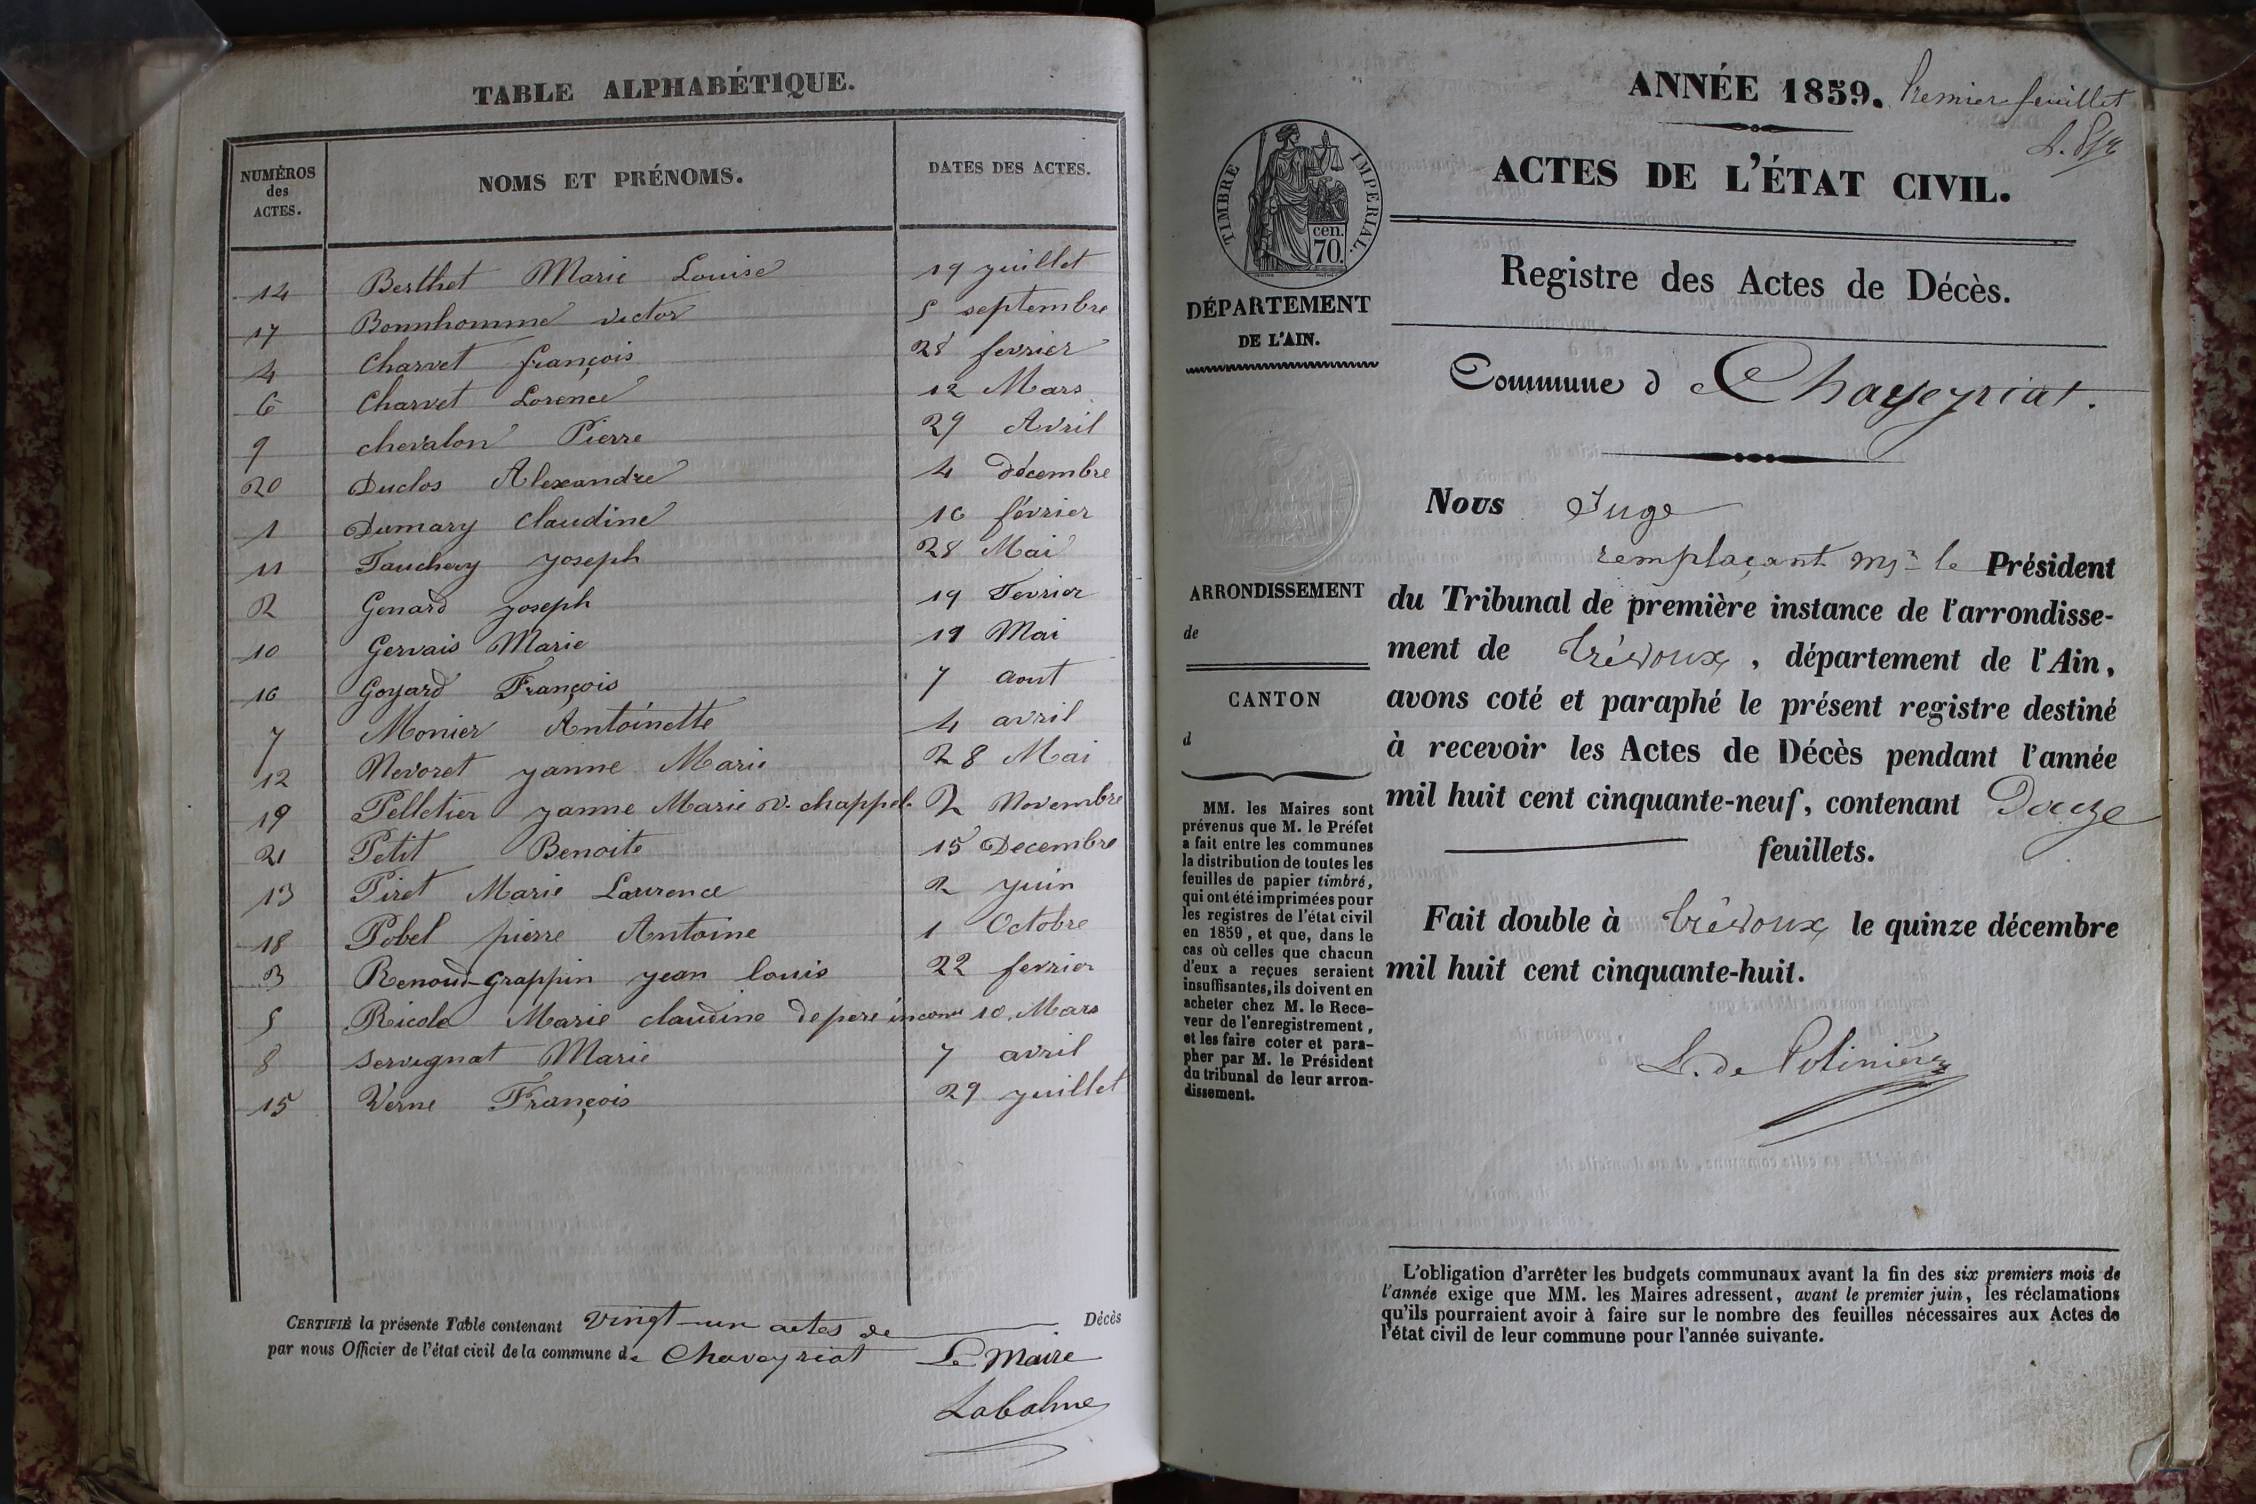 TABLE ALPHABÉTIQUE.
NUMÉROS des ACTES. NOMS ET PRÉNOMS. DATES DES ACTES.
14 Berthet Marie Louise 19 juillet
17 Bonnhomme victor 5 septembre
4 Charvet françois 28 fevrier
6 Charvet Lorence 12 Mars
9 chevalon Pierre 29 Avril
20 Duclos Alexandre 4 décembre
1 Dumary Claudine 16 février
11 Fauchery joseph 28 Mai
2 Genard joseph 19 Fevrier
10 Gervais Marie 19 Mai
16 Goyard François 7 aout
7 Monier Antoinette 4 avril
12 Nevoret janne Marie 28 Mai
19 Pelletier janne Marie v. chappel. 2 Novembre
21 Petit Benoite 15 Decembre
13 Piret Marie Laurence 2 juin
18 Pobel pierre Antoine 1 Octobre
3 Renoud-Grappin jean louis 22 fevrier
5 Ricole Marie claudine de pere inconu 10 Mars
8 servignat Marie 7 avril
15 Verne François 29 juillet
CERTIFIÉ la présente Table contenant vingt-un actes de Décès
par nous Officier de l'état civil de la commune de Chaveyriat Le Maire
ANNÉE 1859. Premier feuillet
ACTES DE L'ÉTAT CIVIL.
TIMBRE IMPERIAL.
cen.
70.
DÉPARTEMENT
DE L'AIN.
Registre des Actes de Décès.
Commune d Chaveyriat.
ARRONDISSEMENT
de
CANTON
d
MM. les Maires sont
prévenus que M. le Préfet
a fait entre les communes
la distribution de toutes les
feuilles de papier timbré,
qui ont été imprimées pour
les registres de l'état civil
en 1859, et que, dans le
cas où celles que chacun
d'eux a reçues seraient
insuffisantes, ils doivent en
acheter chez M. le Rece-
veur de l'enregistrement,
et les faire coter et para-
pher par M. le Président
du tribunal de leur arron-
dissement.
Nous Juge
remplaçant Mr le Président
du Tribunal de première instance de l'arrondisse-
ment de Trévoux, département de l'Ain,
avons coté et paraphé le présent registre destiné
à recevoir les Actes de Décès pendant l'année
mil huit cent cinquante-neuf, contenant Douze
feuillets.
Fait double à Trévoux le quinze décembre
mil huit cent cinquante-huit.
L. de Polinière
L'obligation d'arrêter les budgets communaux avant la fin des six premiers mois de
l'année exige que MM. les Maires adressent, avant le premier juin, les réclamations
qu'ils pourraient avoir à faire sur le nombre des feuilles nécessaires aux Actes de
l'état civil de leur commune pour l'année suivante.